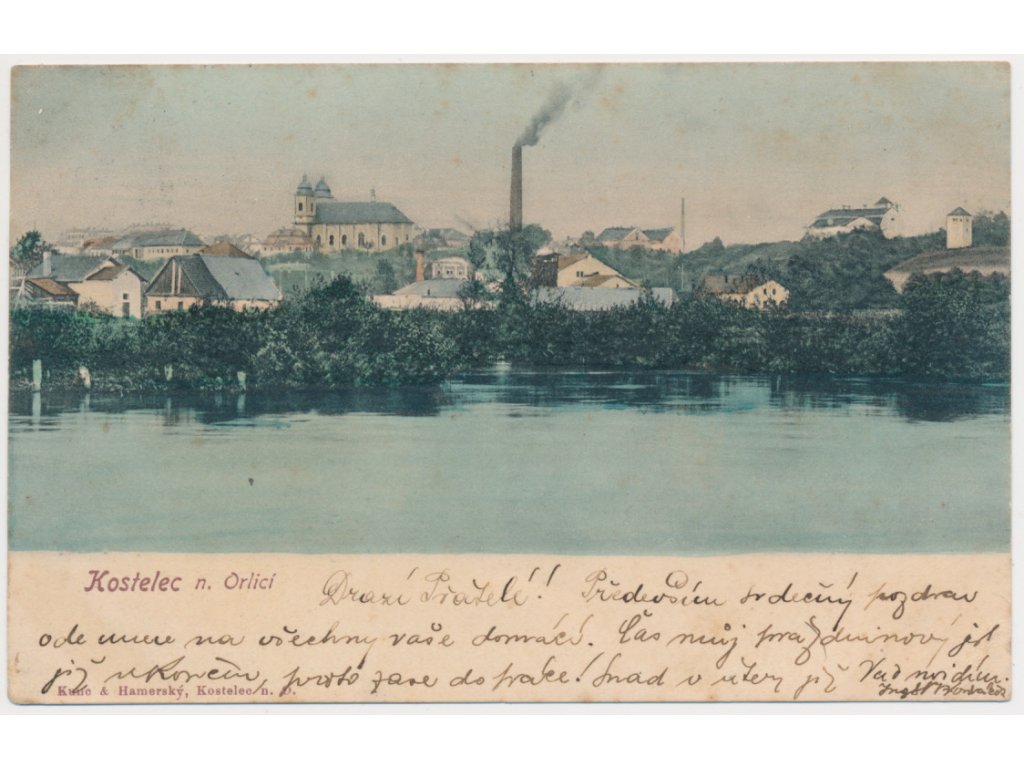 Kostelec n. Orlicí
Drazí Přátelé! Především srdečný pozdrav
ode mne na všechny vaše domácí. Čas můj prazdninový jest
již ukončen, proto zase do práce! Snad v úterý již Vás uvidím.
Kunc & Hamerský, Kostelec n. O.